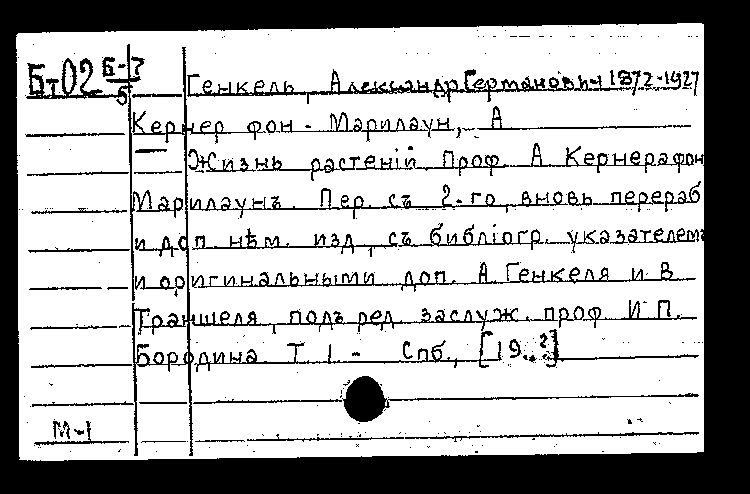 Бт02 Б-7/5
Генкель, Александр Германович 1872-1927
Кернер фон-Марилаун, А
Жизнь растенiй. Проф. А Кернера фон
Марилаунъ. Пер. съ 2-го, вновь перераб
и доп. нѣм. изд, съ библiогр. указателемъ
и оригинальными доп. А. Генкеля и В
Траншеля, подъ ред. заслуж. проф. И П.
Бородина. Т 1. - Спб., [19..?]
М-1